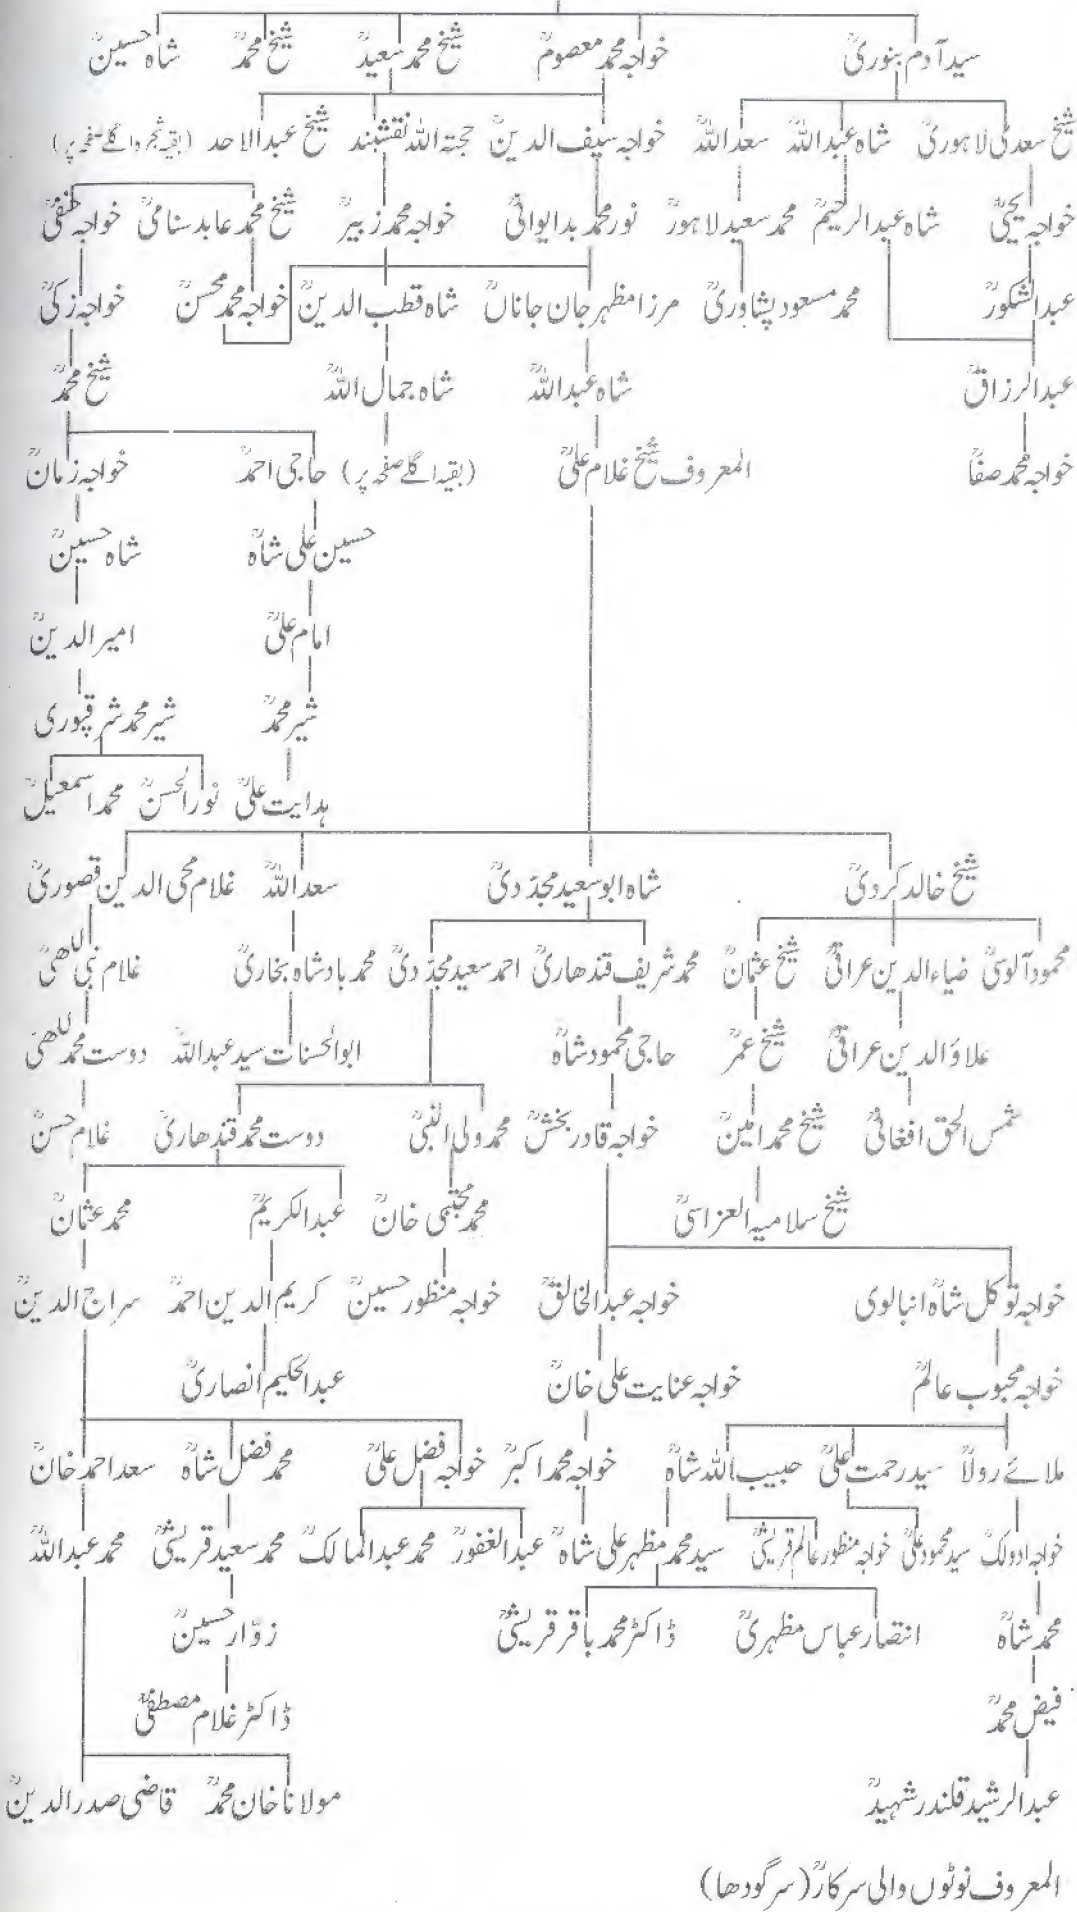 سید آدم بنوریؒ خواجہ محمد معصومؒ شیخ محمد سعیدؒ شیخ محمدؒ شاہ حسینؒ
شیخ سعدی لاہوریؒ شاہ عبداللہؒ سعداللہؒ خواجہ سیف الدینؒ حجتہ اللہ نقشبندؒ شیخ عبدالاحد (بقیہ شجرہ اگلے صفحہ پر)
خواجہ یحیٰؒ شاہ عبدالرحیمؒ محمد سعید لاہوریؒ نور محمد بدایوانیؒ خواجہ محمد زبیرؒ شیخ محمد عابد سنامیؒ خواجہ حنفیؒ
عبدالشکورؒ محمد مسعود پشاوریؒ مرزا مظہر جان جاناںؒ شاہ قطب الدینؒ خواجہ محمد محسنؒ خواجہ زکیؒ
عبدالرزاقؒ شاہ عبداللہؒ شاہ جمال اللہؒ شیخ محمدؒ
خواجہ محمد صفاؒ المعروف شیخ غلام علیؒ (بقیہ اگلے صفحہ پر) حاجی احمدؒ خواجہ زمانؒ
حسین علی شاہؒ شاہ حسینؒ
امام علیؒ امیر الدینؒ
شیر محمدؒ شیر محمد شرقپوری
ہدایت علیؒ نورالحسنؒ محمد اسمعیلؒ
شیخ خالد کردیؒ شاہ ابو سعید مجدّدیؒ سعداللہؒ غلام محی الدین قصوریؒ
محمود آلوسیؒ ضیاءالدین عراقیؒ شیخ عثمانؒ محمد شریف قندھاریؒ احمد سعید مجدّدیؒ محمد بادشاہ بخاریؒ غلام نبی للھیؒ
علاؤالدین عراقیؒ شیخ عمرؒ حاجی محمود شاہؒ ابوالحسنات سید عبداللہؒ دوست محمد للھیؒ
شمس الحق افغانیؒ شیخ محمد امینؒ خواجہ قادر بخشؒ محمد ولی النبیؒ دوست محمد قندھاریؒ غلام حسنؒ
شیخ سلامیہ العزاسیؒ محمد مجتبیٰ خانؒ عبدالکریمؒ محمد عثمانؒ
خواجہ توکل شاہؒ انبالوی خواجہ عبدالخالقؒ خواجہ منظور حسینؒ کریم الدین احمدؒ سراج الدینؒ
خواجہ محبوب عالمؒ خواجہ عنایت علی خانؒ عبدالحکیم انصاریؒ
ملائے رولاؒ سید رحمت علیؒ حبیب اللہ شاہؒ خواجہ محمد اکبرؒ خواجہ فضل علیؒ محمد فضل شاہؒ سعد احمد خانؒ
خواجہ ادولکؒ سید محمود علیؒ خواجہ منظور عالم قریشیؒ سید محمد مظہر علی شاہؒ عبدالغفورؒ محمد عبدالمالکؒ محمد سعید قریشیؒ محمد عبداللہؒ
محمد شاہؒ انتصار عباس مظہریؒ ڈاکٹر محمد باقر قریشیؒ زوّار حسینؒ
فیض محمدؒ ڈاکٹر غلام مصطفیٰؒ
عبدالرشید قلندر شہیدؒ مولانا خان محمدؒ قاضی صدرالدینؒ
المعروف نوٹوں والی سرکارؒ (سرگودھا)